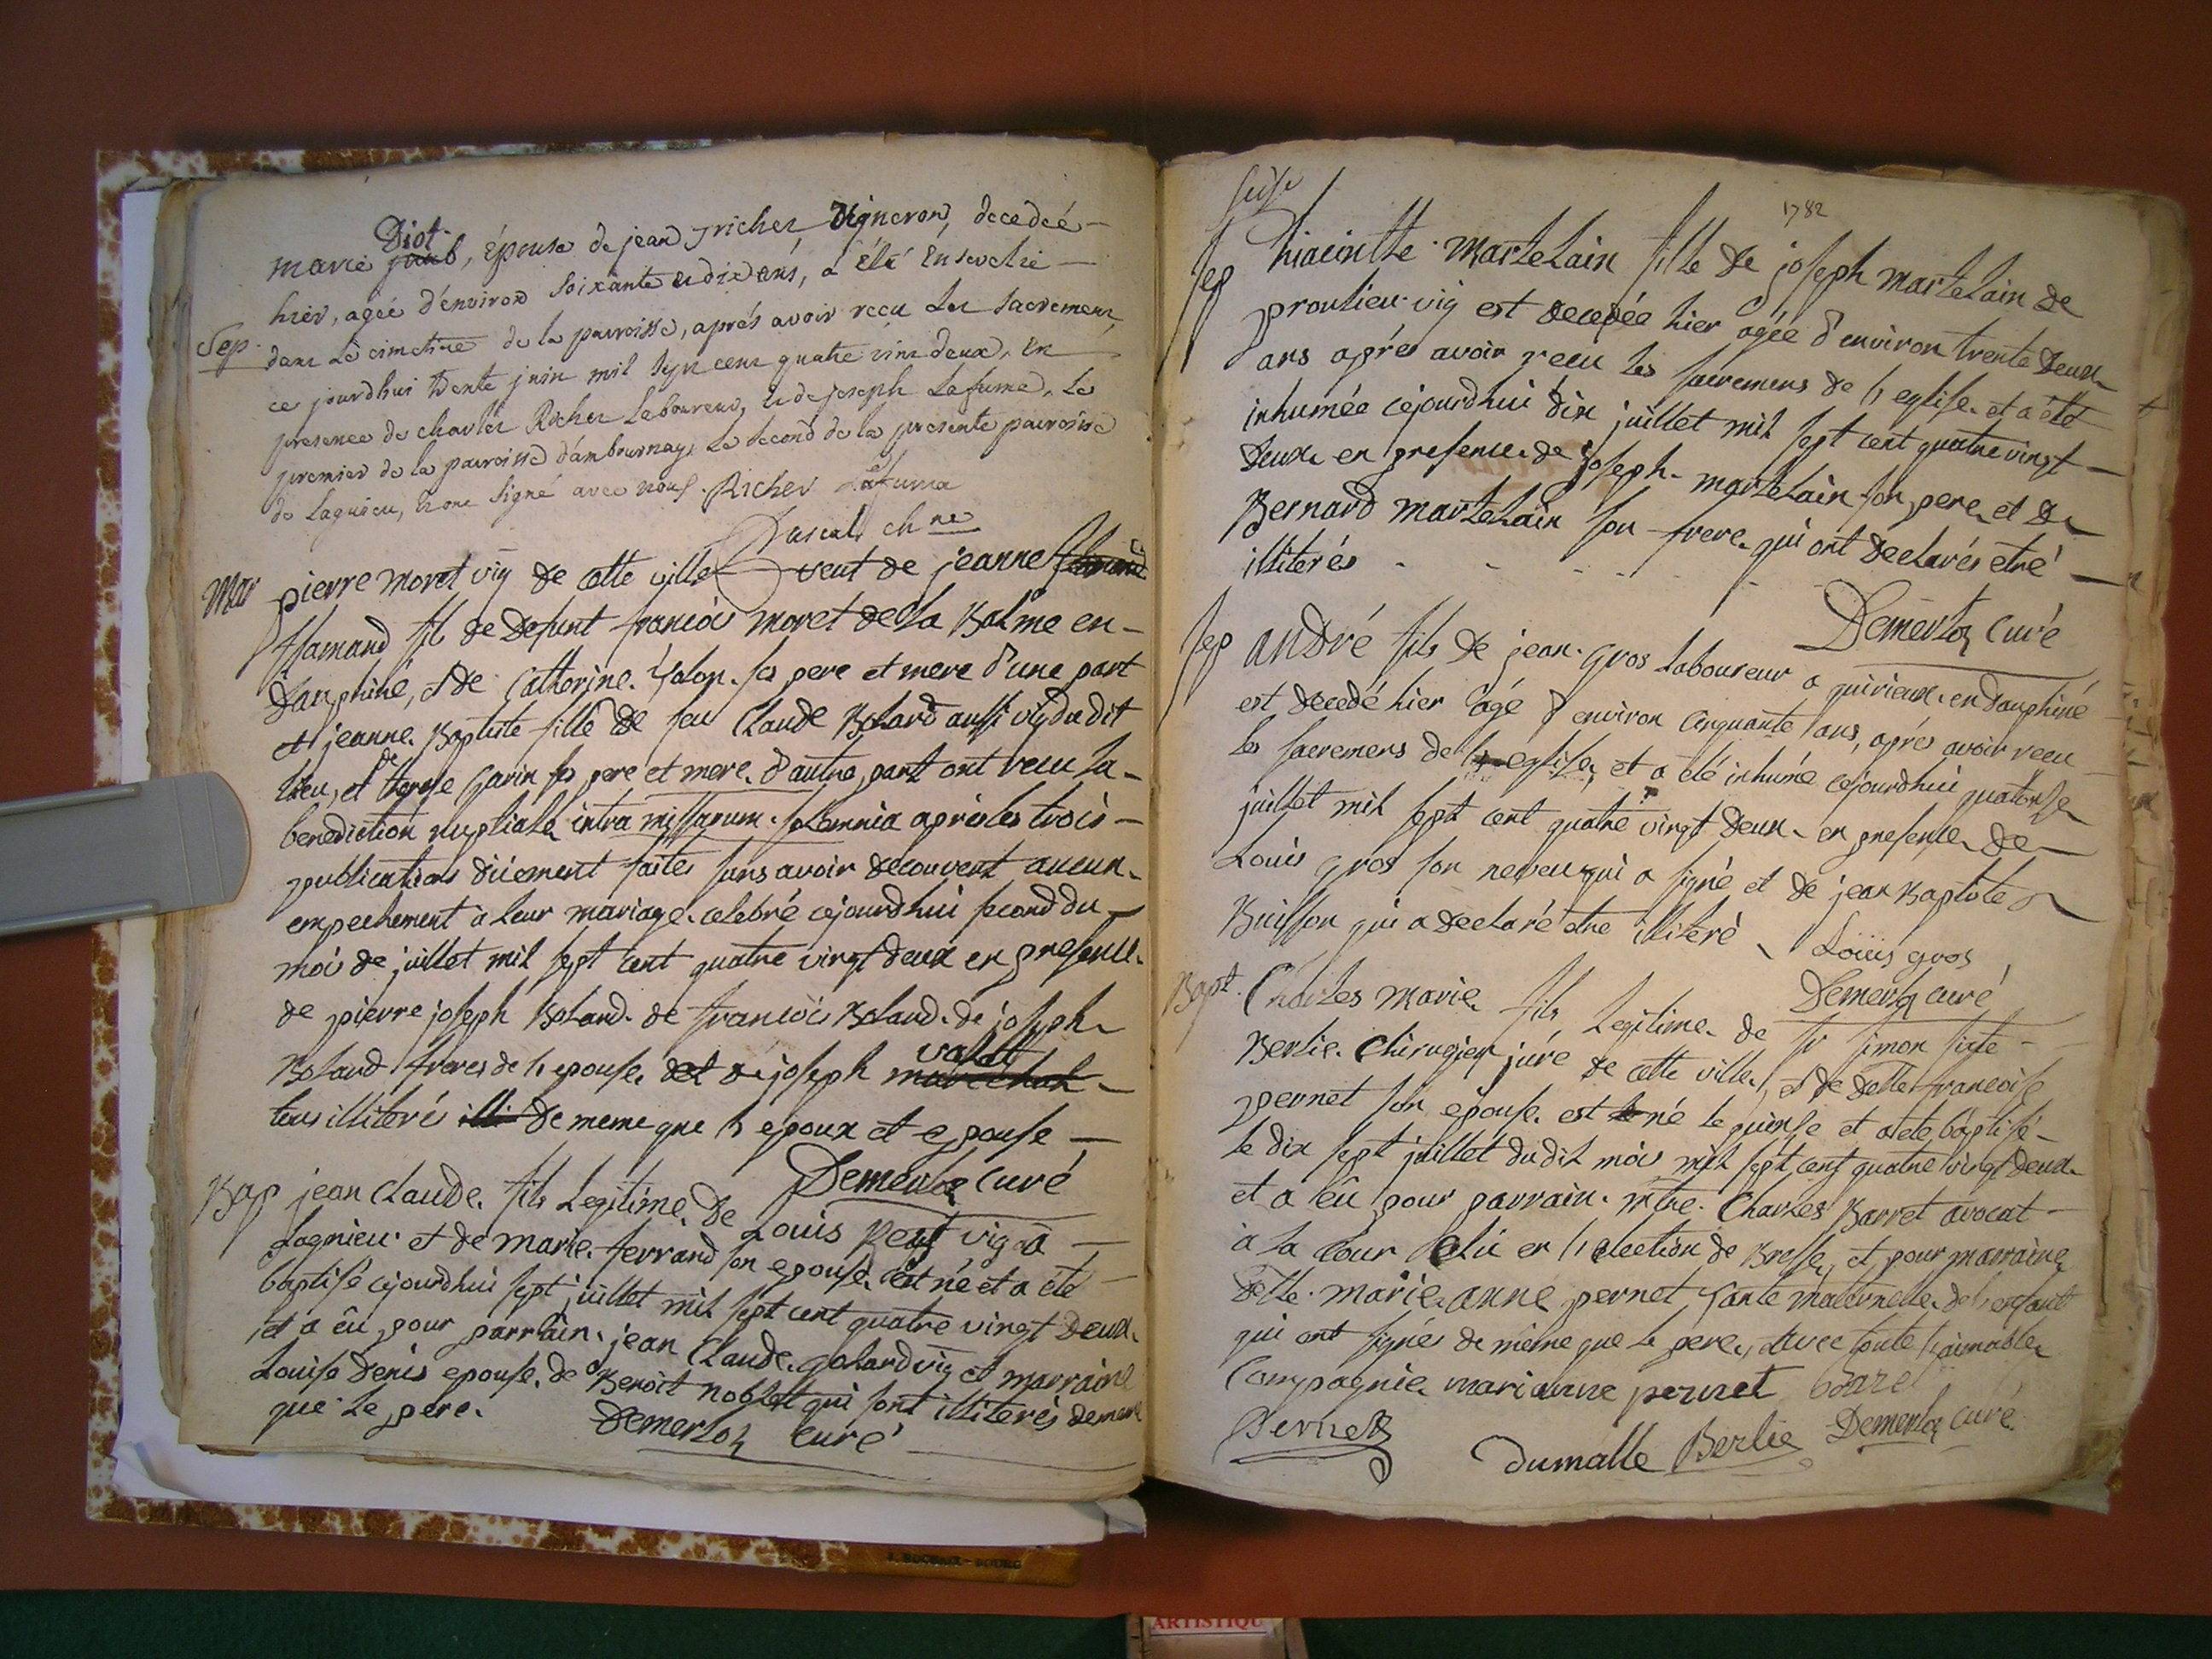 Diot
marie, épouse de jean richer, vigneron, decedeé
hier, agée d'environ soixante et dix ans, a été ensevelie
Sep. dans le cimetiere de la paroisse, aprés avoir reçu les sacremens,
ce jourdhui trente juin mil sept cens quatre vins deux, en
presence de charles Richer laboureur, et de joseph Lafuma, le
premier de la paroisse d'ambournay, le second de la presente paroisse
de lagnieu, et ont signé avec nous. Richer Lafuma
Pascal, chne
Mar pierre moret vig de cette ville veuf de jeanne
flamand fils de defunt francois moret de la Balme en
dauphiné, et de Catherine. ses pere et mere d'une part
et jeanne Baptiste fille de feu Claude Boland aussi vig dudit
lieu, et de therese Garin ses pere et mere. d'autre part ont recu la
benediction nuptiale intra missarum solemnia après les trois
publications düement faites sans avoir decouvert aucun
empechement à leur mariage. celebré cejourdhui second du
mois de juillet mil sept cent quatre vingt deux en presence
de pierre joseph Boland. de francois Boland. de joseph
Boland freres de l'epouse. et de joseph valet
tous illiterés de meme que l'epoux et epouse
Demerloz Curé
Bap jean Claude. fils Legitime de Louis vig à
Lagnieu et de marie ferrand son epouse. est né et a eté
baptisé cejourdhui sept juillet mil sept cent quatre vingt deux.
et a eû pour parrain. jean Claude. goland vig et marraine
Louise denis epouse. de Benoit noblet qui sont illiterés de meme
que le pere. Demerloz Curé
seise
1782
Sep hiacinthe martelain fille de joseph martelain de
proulieu vig est decedée hier agée d'environ trente deux
ans après avoir recu les sacremens de l'eglise. et a été
inhumée cejourdhui dix juillet mil sept cent quatre vingt
deux en presence de joseph martelain son pere et de
Bernard martelain son frere qui ont declarés etre
illiterés
Demerloz Curé
Sep André fils de jean gros Laboureur a quirieux en dauphiné
est decedé hier agé d'environ cinquante ans, après avoir recu
les sacremens de l'eglise, et a eté inhumé cejourdhui quatorse
juillet mil sept cent quatre vingt deux en presence de
Louis gros son neveu qui a signé et de jean Baptiste
Buisson qui a declaré etre illiteré Loüis gros
Demerloz curé
Bapt. Charles marie fils Legitime de sr simon sixte
Berlie. chirugien juré de cette ville, et de delle francoise
pernet son epouse. est né le quinse et a eté baptisé
le dix sept juillet dudit mois mil sept cent quatre vingt deux
et a eû pour parrain. mtre. Charles Barret avocat
à la Cour elu en l'election de Bresse, et pour marraine
delle. marie anne pernet tante maternelle de l'enfant
qui ont signés de même que le pere, avec toute l'aimable
Compagnie marianne pernet Baret
Pernet
dumalle Berlie Demerloz curé
ARTISTIQU